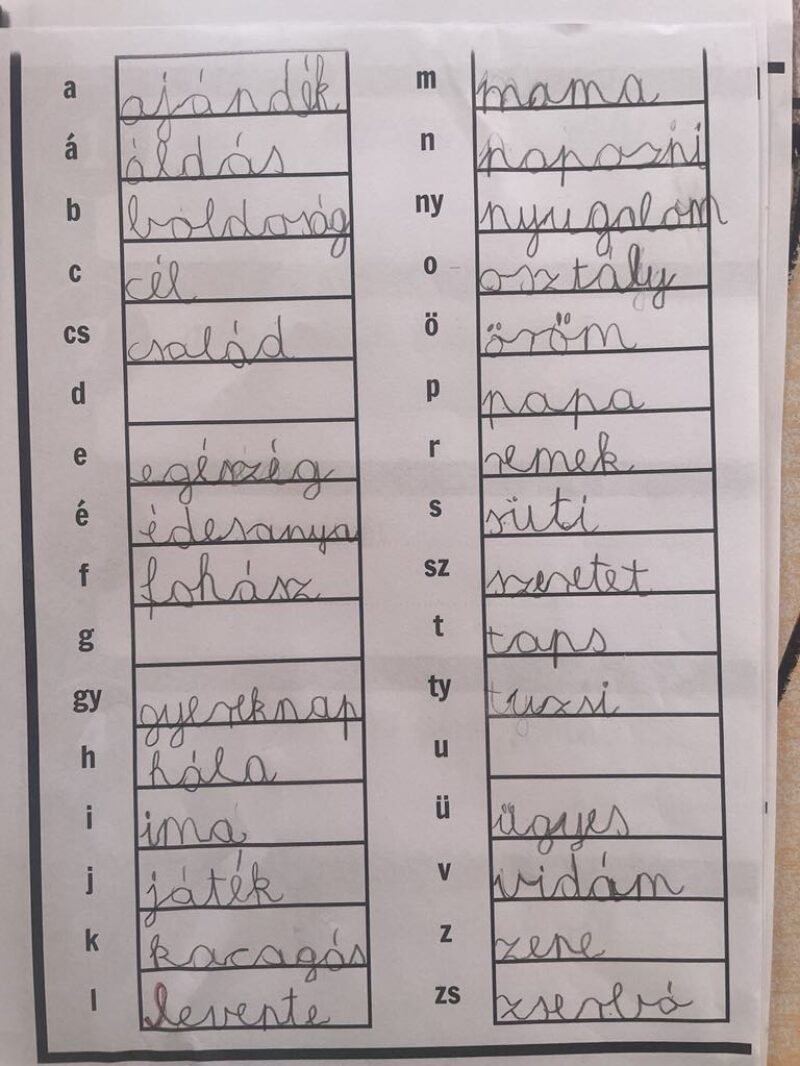 a ajándék
á áldás
b boldoság
c cél
cs család
d
e egészég
é édesanya
f fohász
g
gy gyereknap
h hála
i ima
j játék
k kacagás
l levente
m mama
n napozni
ny nyugalom
o osztály
ö öröm
p papa
r remek
s süti
sz szeretet
t taps
ty
u
ü ügyes
v vidám
z zene
zs zserbó